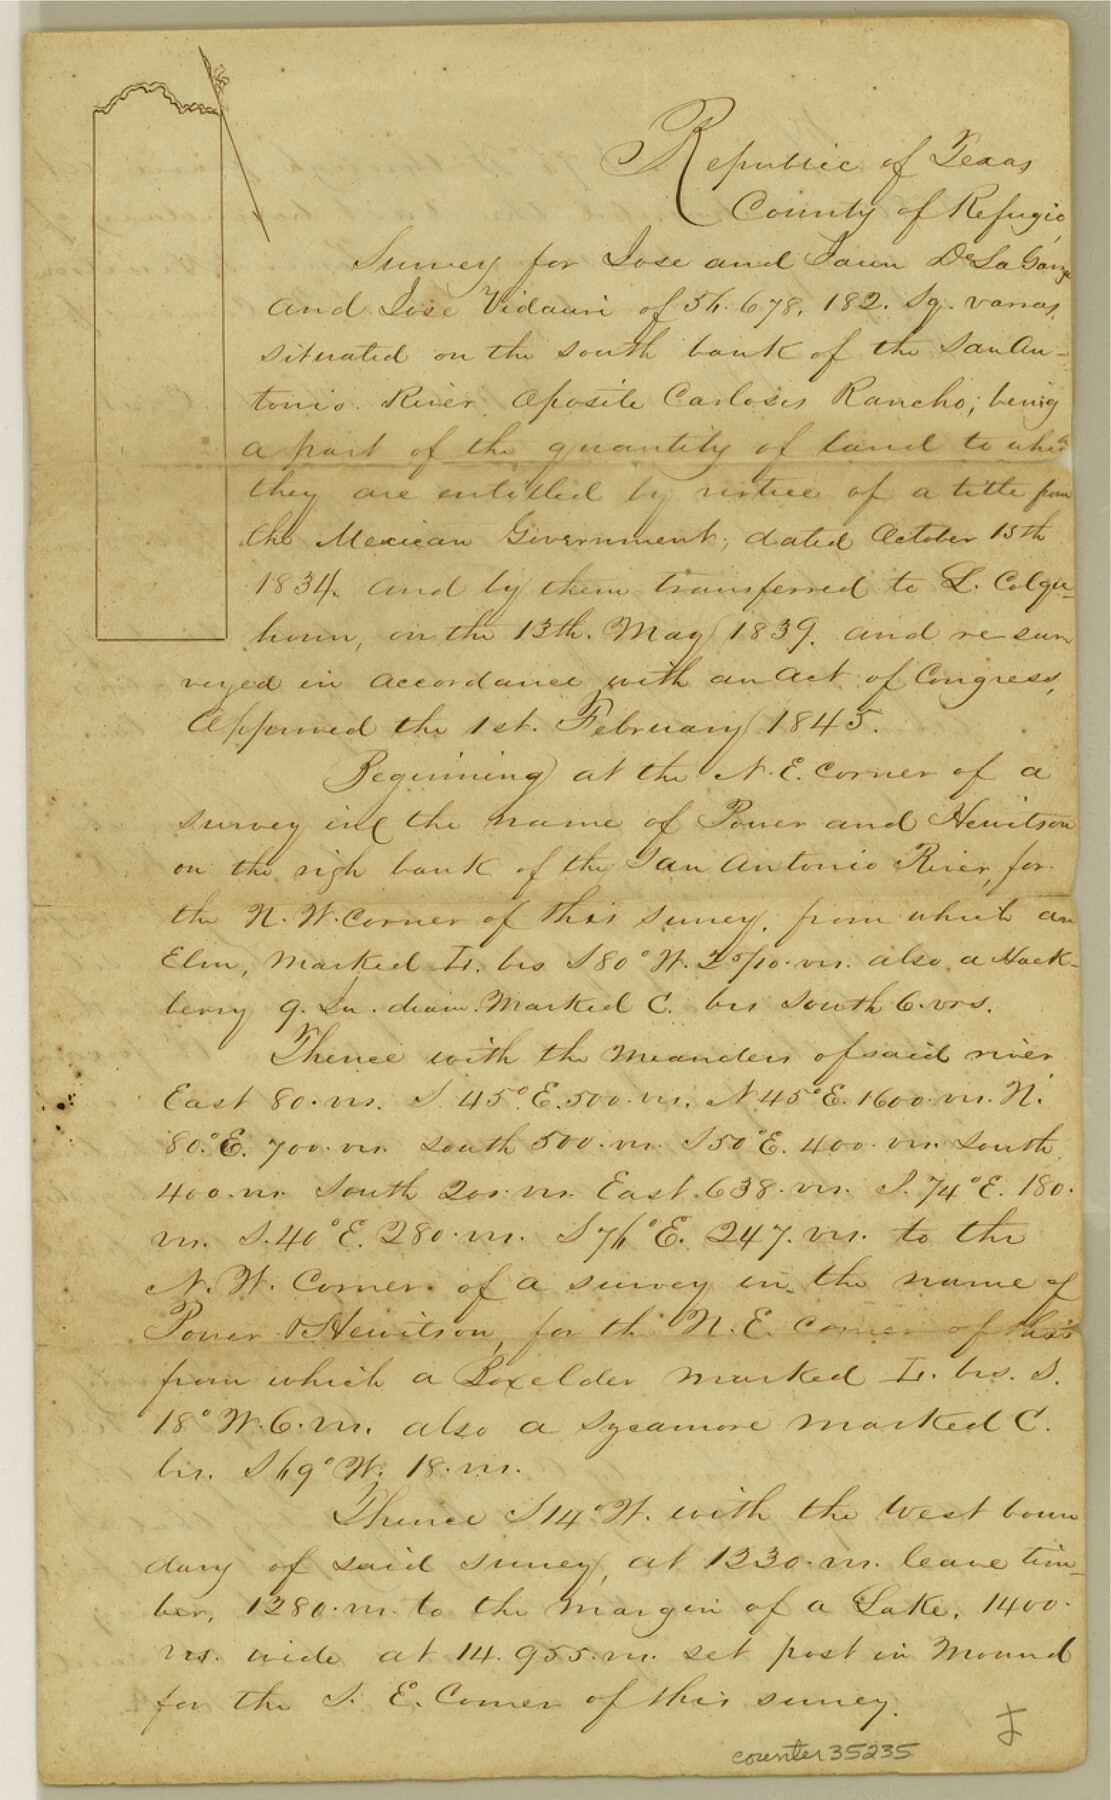 Republic of Texas
County of Refugio
Survey for Jose and Jaun De La Garza
and Jose Vidauri of 56.678,182. Sq. varras
situated on the south bank of the San An-
tonio River Aposite Carloses Rancho; being
a part of the quantity of land to which
they are entitled by virtue of a title from
the Mexican Government, dated October 15th
1834. and by them transferred to L. Colqu-
houn, on the 13th. May 1839. and re sur
veyed in accordance with an Act of Congress,
Approved the 1st. February 1845.
Beginning at the N.E. corner of a
survey in the name of Power and Hewitson
on the righ bank of the San Antonio River, for
the N.W. corner of this survey, from which an
Elm, Marked L. brs S80°W. 2 5/10. vrs. also a Hack-
berry 9. In. diam. Marked C. brs South 6. vrs.
Thence with the Meanders of said river
East 80. vrs. S. 45°E. 500. vrs. N45°E. 1600. vrs. N.
80.°E. 700. vrs. South 500. vrs. S50°E. 400. vrs. South
400. vrs. South 200. vrs. East 638. vrs. S. 74°E. 180.
vrs. S.40°E. 280. vrs. S76°E. 247. vrs. to the
N.W. Corner of a survey in the name of
Power & Hewitson, for th N.E. Corner of this
from which a Boxelder marked L. brs. S.
18°W. 6. vrs. also a Sycamore marked C.
brs. S69°W. 18. vrs.
Thence S14°W. with the West boun
dary of said survey, at 1230. vrs. leave tim-
ber, 1280. vrs. to the margin of a Lake. 1400.
vrs. wide at 14.955. vrs. set post in Mound
for the S. E. Corner of this survey.
counter 35235